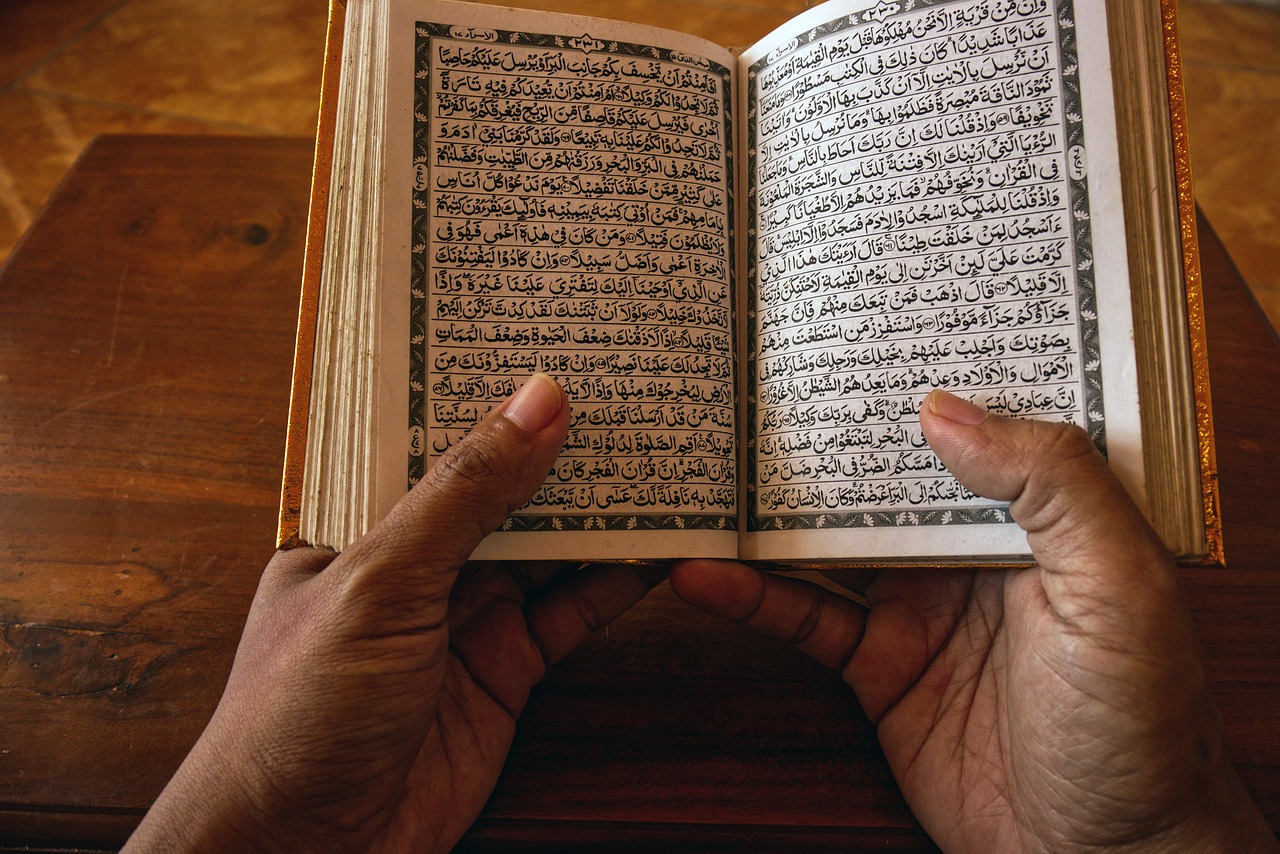 الاسرآء ١٧
٣٣٠
وَاِنْ مِّنْ قَرْيَةٍ اِلَّا نَحْنُ مُهْلِكُوْهَا قَبْلَ يَوْمِ الْقِيٰمَةِ اَوْ مُعَذِّبُوْهَا
عَذَابًا شَدِيْدًا كَانَ ذٰلِكَ فِى الْكِتٰبِ مَسْطُوْرًا ۝٥٨ وَمَا مَنَعَنَآ
اَنْ نُّرْسِلَ بِالْاٰيٰتِ اِلَّآ اَنْ كَذَّبَ بِهَا الْاَوَّلُوْنَ وَاٰتَيْنَا
ثَمُوْدَ النَّاقَةَ مُبْصِرَةً فَظَلَمُوْا بِهَا وَمَا نُرْسِلُ بِالْاٰيٰتِ اِلَّا
تَخْوِيْفًا ۝٥٩ وَاِذْ قُلْنَا لَكَ اِنَّ رَبَّكَ اَحَاطَ بِالنَّاسِ وَمَا جَعَلْنَا
الرُّءْيَا الَّتِيْٓ اَرَيْنٰكَ اِلَّا فِتْنَةً لِّلنَّاسِ وَالشَّجَرَةَ الْمَلْعُوْنَةَ
فِى الْقُرْاٰنِ وَنُخَوِّفُهُمْ فَمَا يَزِيْدُهُمْ اِلَّا طُغْيَانًا كَبِيْرًا ۝٦٠
وَاِذْ قُلْنَا لِلْمَلٰٓئِكَةِ اسْجُدُوْا لِاٰدَمَ فَسَجَدُوْٓا اِلَّآ اِبْلِيْسَ قَالَ
ءَاَسْجُدُ لِمَنْ خَلَقْتَ طِيْنًا ۝٦١ قَالَ اَرَءَيْتَكَ هٰذَا الَّذِيْ
كَرَّمْتَ عَلَيَّ لَئِنْ اَخَّرْتَنِ اِلٰى يَوْمِ الْقِيٰمَةِ لَاَحْتَنِكَنَّ ذُرِّيَّتَهٗٓ
اِلَّا قَلِيْلًا ۝٦٢ قَالَ اذْهَبْ فَمَنْ تَبِعَكَ مِنْهُمْ فَاِنَّ جَهَنَّمَ
جَزَآؤُكُمْ جَزَآءً مَّوْفُوْرًا ۝٦٣ وَاسْتَفْزِزْ مَنِ اسْتَطَعْتَ مِنْهُمْ
بِصَوْتِكَ وَاَجْلِبْ عَلَيْهِمْ بِخَيْلِكَ وَرَجِلِكَ وَشَارِكْهُمْ فِى
الْاَمْوَالِ وَالْاَوْلَادِ وَعِدْهُمْ وَمَا يَعِدُهُمُ الشَّيْطٰنُ اِلَّا غُرُوْرًا ۝٦٤
اِنَّ عِبَادِيْ لَيْسَ سُلْطٰنٌ وَكَفٰى بِرَبِّكَ وَكِيْلًا ۝٦٥ رَبُّكُمُ
فِى الْبَحْرِ لِتَبْتَغُوْا مِنْ فَضْلِهٖ اِنَّهٗ
وَاِذَا مَسَّكُمُ الضُّرُّ فِى الْبَحْرِ ضَلَّ مَنْ
نَجّٰىكُمْ اِلَى الْبَرِّ اَعْرَضْتُمْ وَكَانَ الْاِنْسَانُ كَفُوْرًا ۝٦٧
سبحن الذى ١٥
٣٣١
الاسرآء ١٧
اَفَاَمِنْتُمْ اَنْ يَّخْسِفَ بِكُمْ جَانِبَ الْبَرِّ اَوْ يُرْسِلَ عَلَيْكُمْ حَاصِبًا
ثُمَّ لَا تَجِدُوْا لَكُمْ وَكِيْلًا ۝٦٨ اَمْ اَمِنْتُمْ اَنْ يُّعِيْدَكُمْ فِيْهِ تَارَةً
اُخْرٰى فَيُرْسِلَ عَلَيْكُمْ قَاصِفًا مِّنَ الرِّيْحِ فَيُغْرِقَكُمْ بِمَا كَفَرْتُمْ
ثُمَّ لَا تَجِدُوْا لَكُمْ عَلَيْنَا بِهٖ تَبِيْعًا ۝٦٩ وَلَقَدْ كَرَّمْنَا بَنِيْٓ اٰدَمَ وَ
حَمَلْنٰهُمْ فِى الْبَرِّ وَالْبَحْرِ وَرَزَقْنٰهُمْ مِّنَ الطَّيِّبٰتِ وَفَضَّلْنٰهُمْ
عَلٰى كَثِيْرٍ مِّمَّنْ خَلَقْنَا تَفْضِيْلًا ۝٧٠ يَوْمَ نَدْعُوْا كُلَّ اُنَاسٍ
بِاِمَامِهِمْ فَمَنْ اُوْتِيَ كِتٰبَهٗ بِيَمِيْنِهٖ فَاُولٰٓئِكَ يَقْرَءُوْنَ كِتٰبَهُمْ
وَلَا يُظْلَمُوْنَ فَتِيْلًا ۝٧١ وَمَنْ كَانَ فِيْ هٰذِهٖٓ اَعْمٰى فَهُوَ فِى
الْاٰخِرَةِ اَعْمٰى وَاَضَلُّ سَبِيْلًا ۝٧٢ وَاِنْ كَادُوْا لَيَفْتِنُوْنَكَ
عَنِ الَّذِيْٓ اَوْحَيْنَآ اِلَيْكَ لِتَفْتَرِيَ عَلَيْنَا غَيْرَهٗ وَاِذًا
لَّاتَّخَذُوْكَ خَلِيْلًا ۝٧٣ وَلَوْلَآ اَنْ ثَبَّتْنٰكَ لَقَدْ كِدْتَّ تَرْكَنُ اِلَيْهِمْ
شَيْئًا قَلِيْلًا ۝٧٤ اِذًا لَّاَذَقْنٰكَ ضِعْفَ الْحَيٰوةِ وَضِعْفَ الْمَمَاتِ
ثُمَّ لَا تَجِدُ لَكَ عَلَيْنَا نَصِيْرًا ۝٧٥ وَاِنْ كَادُوْا لَيَسْتَفِزُّوْنَكَ مِنَ
الْاَرْضِ لِيُخْرِجُوْكَ مِنْهَا وَاِذًا لَّا يَلْبَثُوْنَ خِلٰفَكَ اِلَّا قَلِيْلًا ۝٧٦
سُنَّةَ مَنْ قَدْ اَرْسَلْنَا قَبْلَكَ مِنْ لِسُنَّتِنَا
تَحْوِيْلًا ۝٧٧ اَقِمِ الصَّلٰوةَ لِدُلُوْكِ الشَّمْسِ
وَقُرْاٰنَ الْفَجْرِ اِنَّ قُرْاٰنَ الْفَجْرِ كَانَ
فَتَهَجَّدْ بِهٖ نَافِلَةً لَّكَ عَسٰٓى اَنْ يَّبْعَثَكَ